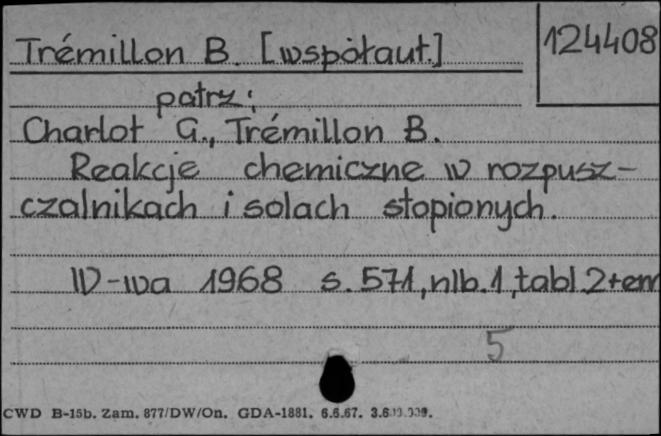 Trémillon B. [współaut.]
124408
patrz:
Charlot G., Trémillon B.
Reakcje chemiczne w rozpusz-
czalnikach i solach stopionych.
W-wa 1968 s. 571, nlb. 1, tabl. 2+em
5
CWD B-15b. Zam. 877/DW/On. GDA-1881. 6.6.67.